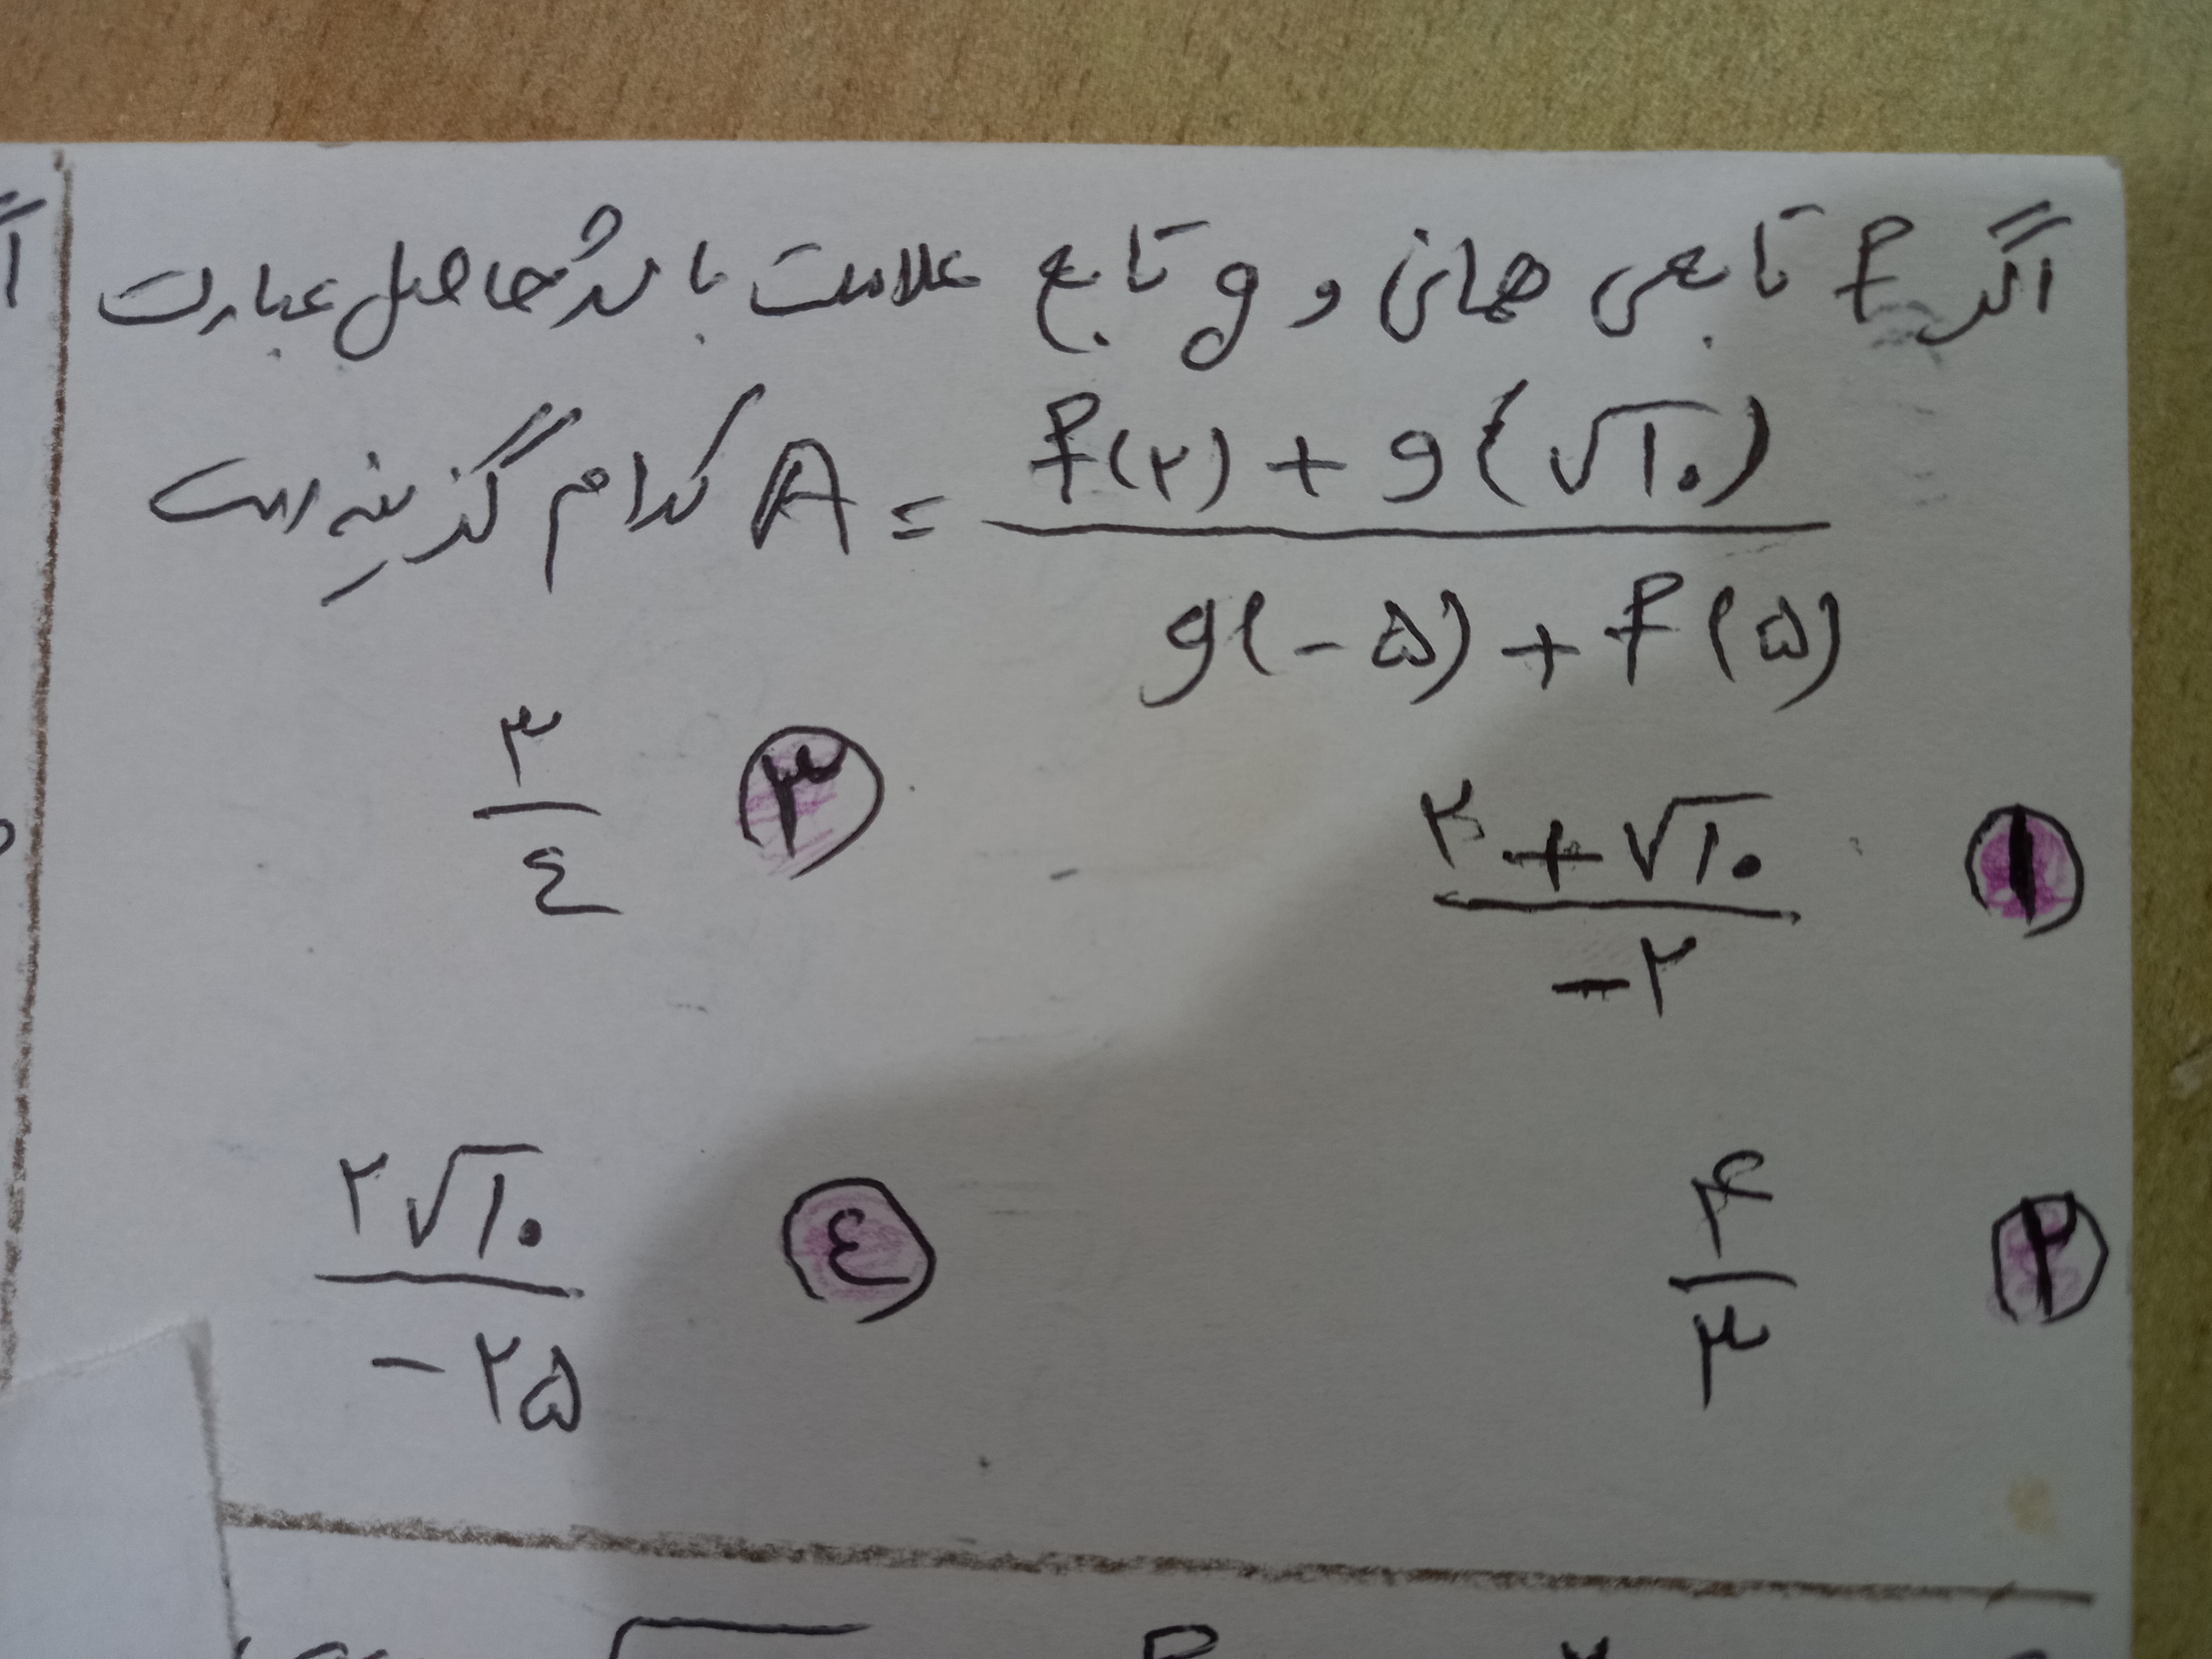 اگر f تابعی همانی و g تابع علامت باشد حاصل عبارت
A = (f(۲) + g(√۱۰)) / (g(-۵) + f(۵)) کدام گزینه است
۱ (۲ + √۱۰) / -۲
۳ ۳/٤
۲ ۴/۳
٤ ۲√۱۰ / -۲۵